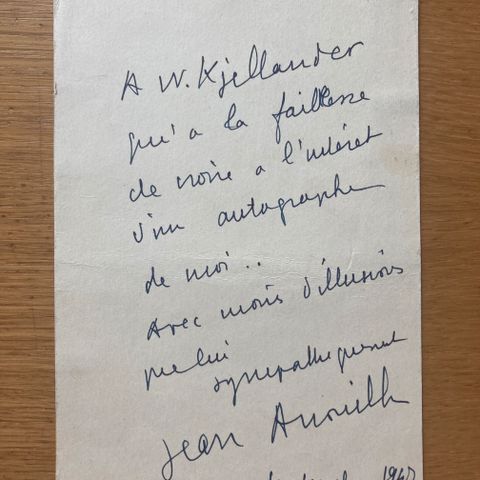 A W. Kjellander
qui a la faiblesse
de croire a l'intéret
d'un autographe
de moi..
Avec moins d'illusions
que lui
sympathiquement
Jean Anouilh